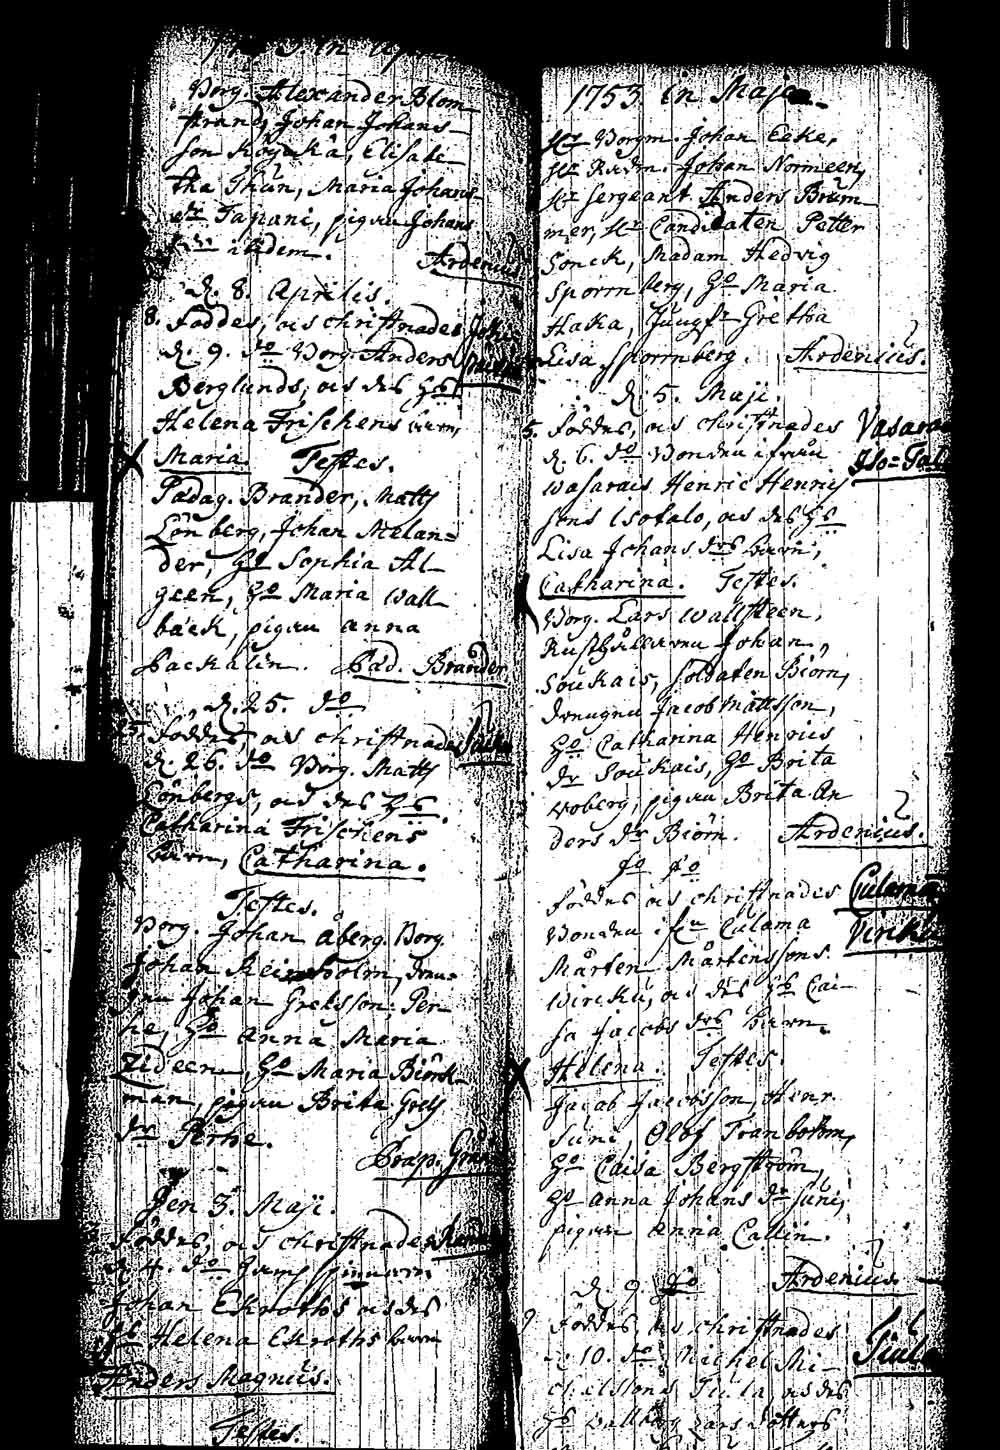 Borg. Alexander Blom-
Johan Johans-
son Köyckä, Elisabe-
tha Thun, Maria Johans
dr Tapani, pigan Johans
ibidem. Ardenius
d. 8. Aprilis.
8. Föddes, och christnades
d. 9. do Borg. Anders
Berglunds, och des Hs
Helena Frischens barn,
Maria. Testes.
Pædag. Brander, Matts
Lönberg, Johan Melan=
der, Ho Sophia Al-
green, Ho Maria Wall-
bäck, pigan Anna
Backalin. Päd. Brander
d. 25. do
25. Föddes, och christnades
d. 26. do Borg. Matts
Lönbergs, och des Hs
Catharina Frischens
barn, Catharina.
Testes.
Borg. Johan Åberg. Borg.
Johan Reinholm, dren-
gen Johan Grelsson Per-
he, Ho Anna Maria
Zideen, Ho Maria Biörk-
man, pigan Brita Grels
dr Perhe.
Den 3. Maji.
Föddes, och christnades
d. 4. do
Johan Ekroths och des
Hs Helena Ekroths barn
Anders Magnus.
Testes.
1753 in Majo
Hr Borgm. Johan Eeke,
Hr Rådm. Johan Normeen,
Hr Sergeant Anders Brum-
mer, Hr Candidaten Petter
Sonck, Madam Hedvig
Sporrnberg, Ho Maria
Haka, Jungfr Gretha
Lisa Sporrnberg. Ardenius.
d. 5. Maji.
5. Föddes, och christnades
d. 6. do Bonden ifrån
Wasarais Henric Henrics
sons Isotalo, och des Hs
Lisa Johans drs barn,
Catharina. Testes.
Borg. Lars Wallsteen,
Rusthållaren Johan
Soukais, Soldaten Biörn,
drengen Jacob Mattsson,
Ho Catharina Henrics
dr Soukais, Ho Brita
Woberg, pigan Brita An
ders dr Biörn. Ardenius.
do do
Föddes och christnades
Bonden ifrån Culama
Mårten Mårtenssons
Wircku, och des Hs Cai-
sa Jacobs drs barn
Helena. Testes.
Jacob Jacobsson, Henr.
Suni, Olof Tranbohm,
Ho Caisa Bergström,
Ho Anna Johans dr Suni,
pigan Anna Callin.
Ardenius
d. 9. do
9 Föddes, och christnades
d. 10. do Michel Mi-
chelssons Tiula, och des
Hs Wallborg Lars dotters